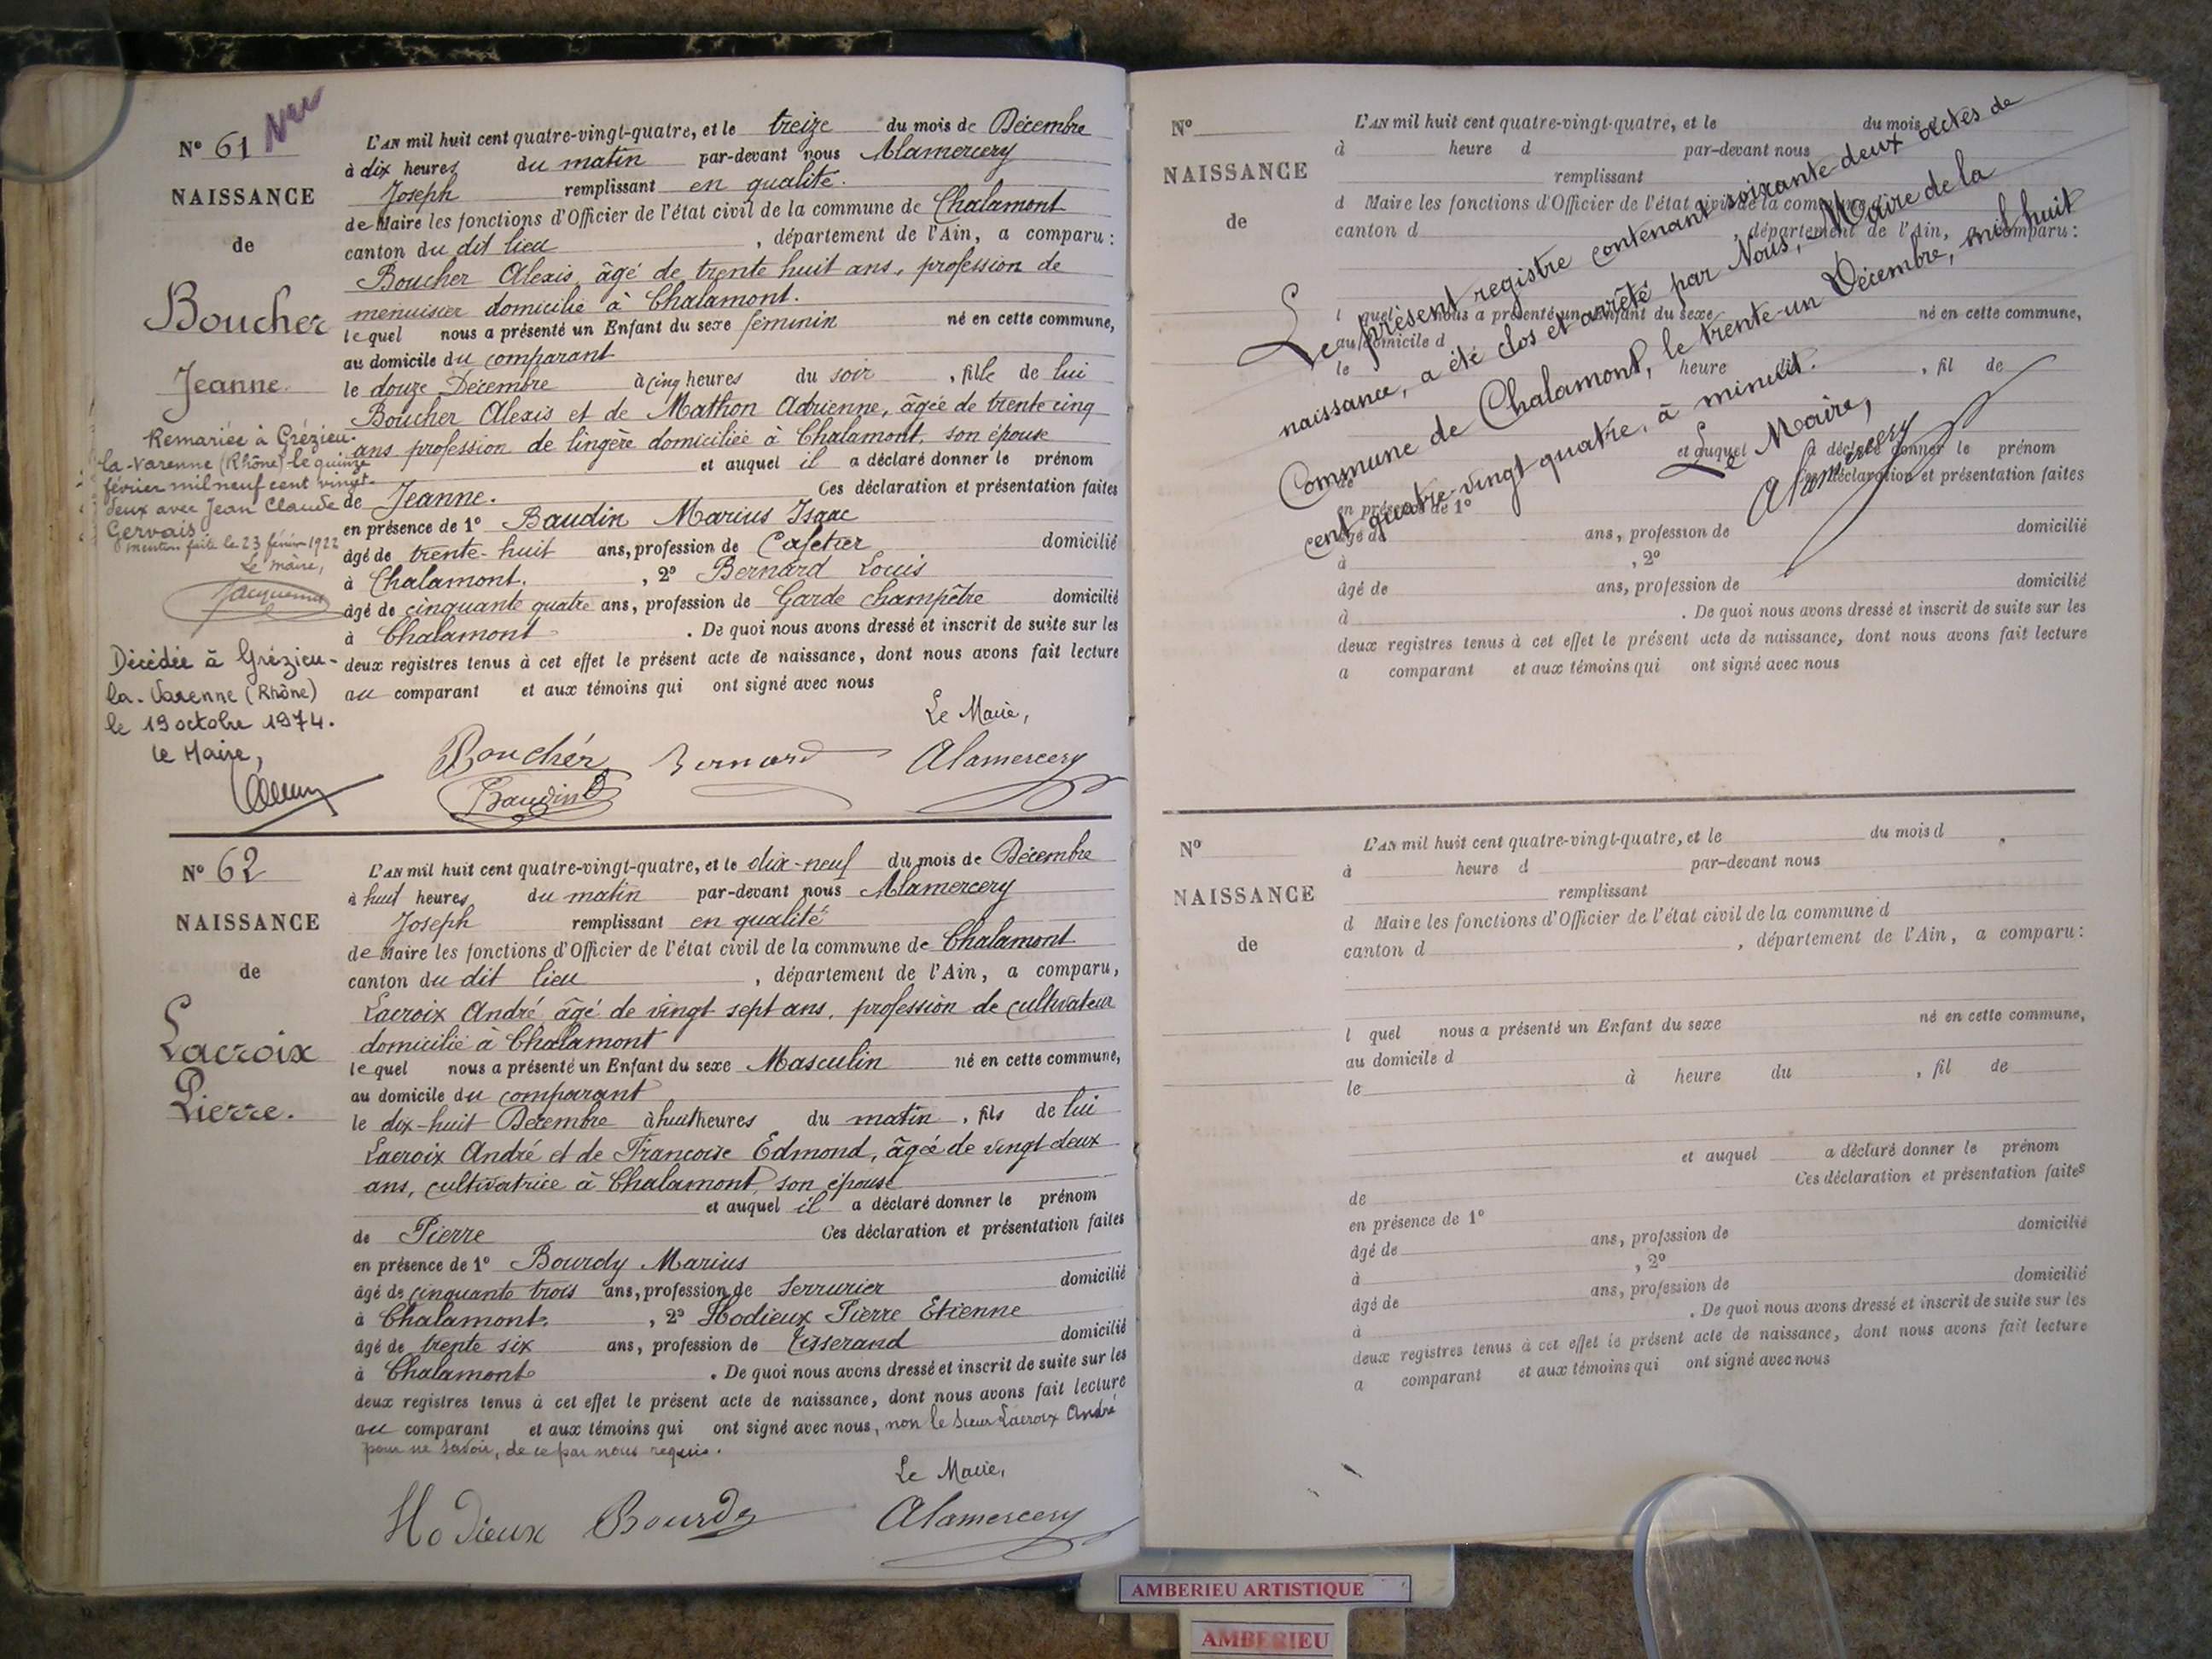 N° 61
NAISSANCE
de
Boucher
Jeanne.
Remariée à Grézieu-
la-Varenne (Rhône) le quinze
février mil neuf cent vingt-
deux avec Jean Claude
Gervais
mention faite le 23 février 1922
Le maire,
Jacquemin
Décédée à Grézieu-
la-Varenne (Rhône)
le 19 octobre 1974.
le Maire,
L'AN mil huit cent quatre-vingt-quatre, et le treize du mois de Décembre
à dix heures du matin par-devant nous Alamercery
Joseph remplissant en qualité.
de Maire les fonctions d'Officier de l'état civil de la commune de Chalamont
canton du dit lieu , département de l'Ain, a comparu :
Boucher Alexis, âgé de trente huit ans, profession de
menuisier domicilié à Chalamont.
lequel nous a présenté un Enfant du sexe féminin né en cette commune,
au domicile du comparant
le douze Décembre à cinq heures du soir , fille de lui
Boucher Alexis et de Mathon Adrienne, âgée de trente cinq
ans profession de lingère domiciliée à Chalamont, son épouse
et auquel il a déclaré donner le prénom
de Jeanne. Ces déclaration et présentation faites
en présence de 1° Baudin Marius Isaac
âgé de trente-huit ans, profession de Cafetier domicilié
à Chalamont. , 2° Bernard Louis
âgé de cinquante quatre ans, profession de Garde champêtre domicilié
à Chalamont . De quoi nous avons dressé et inscrit de suite sur les
deux registres tenus à cet effet le présent acte de naissance, dont nous avons fait lecture
au comparant et aux témoins qui ont signé avec nous
Le Maire,
Bouchér Bernard Alamercery
Baudin
N° 62
NAISSANCE
de
Lacroix
Pierre.
L'AN mil huit cent quatre-vingt-quatre, et le dix-neuf du mois de Décembre
à huit heures du matin par-devant nous Alamercery
Joseph remplissant en qualité
de Maire les fonctions d'Officier de l'état civil de la commune de Chalamont
canton du dit lieu , département de l'Ain, a comparu,
Lacroix André âgé de vingt sept ans, profession de cultivateur
domicilié à Chalamont
lequel nous a présenté un Enfant du sexe Masculin né en cette commune,
au domicile du comparant
le dix-huit Décembre à huit heures du matin , fils de lui
Lacroix André et de Francoise Edmond, âgée de vingt deux
ans, cultivatrice à Chalamont, son épouse
et auquel il a déclaré donner le prénom
de Pierre Ces déclaration et présentation faites
en présence de 1° Bourdy Marius
âgé de cinquante trois ans, profession de Serrurier domicilié
à Chalamont. , 2° Hodieux Pierre Etienne
âgé de trente six ans, profession de Tisserand domicilié
à Chalamont . De quoi nous avons dressé et inscrit de suite sur les
deux registres tenus à cet effet le présent acte de naissance, dont nous avons fait lecture
au comparant et aux témoins qui ont signé avec nous, non le sieur Lacroix André
pour ne savoir, de ce par nous requis.
Le Maire,
Hodieux Bourdy Alamercery
N°
NAISSANCE
de
L'AN mil huit cent quatre-vingt-quatre, et le du mois
à heure d par-devant nous
remplissant
d Maire les fonctions d'Officier de l'état civil de la commune
canton d , département de l'Ain, a comparu :
l quel nous a présenté un Enfant du sexe né en cette commune,
au domicile d
le heure , fil de
et auquel a déclaré donner le prénom
de Ces déclaration et présentation faites
en présence de 1°
âgé de ans, profession de domicilié
à , 2°
âgé de ans, profession de domicilié
à . De quoi nous avons dressé et inscrit de suite sur les
deux registres tenus à cet effet le présent acte de naissance, dont nous avons fait lecture
a comparant et aux témoins qui ont signé avec nous
Le présent registre contenant soixante-deux actes de
naissance, a été clos et arrêté par Nous, Maire de la
Commune de Chalamont, le trente-un Décembre, mil huit
cent quatre-vingt quatre, à minuit.
Le Maire,
Alamercery
N°
NAISSANCE
de
L'AN mil huit cent quatre-vingt-quatre, et le du mois d
à heure d par-devant nous
remplissant
d Maire les fonctions d'Officier de l'état civil de la commune d
canton d , département de l'Ain, a comparu :
l quel nous a présenté un Enfant du sexe né en cette commune,
au domicile d
le à heure du , fil de
et auquel a déclaré donner le prénom
de Ces déclaration et présentation faites
en présence de 1°
âgé de ans, profession de domicilié
à , 2°
âgé de ans, profession de domicilié
à . De quoi nous avons dressé et inscrit de suite sur les
deux registres tenus à cet effet le présent acte de naissance, dont nous avons fait lecture
a comparant et aux témoins qui ont signé avec nous
AMBERIEU ARTISTIQUE
AMBERIEU